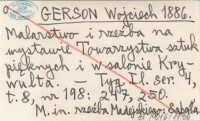 GERSON Wojciech 1886.
Malarstwo i rzeźba na
wystawie Towarzystwa sztuk
pięknych i w salonie Kry-
wulta. — Tyg. Il. ser. 4,
t. 8, nr 198: 247, 250.
M. in. rzeźba Madejskiego: